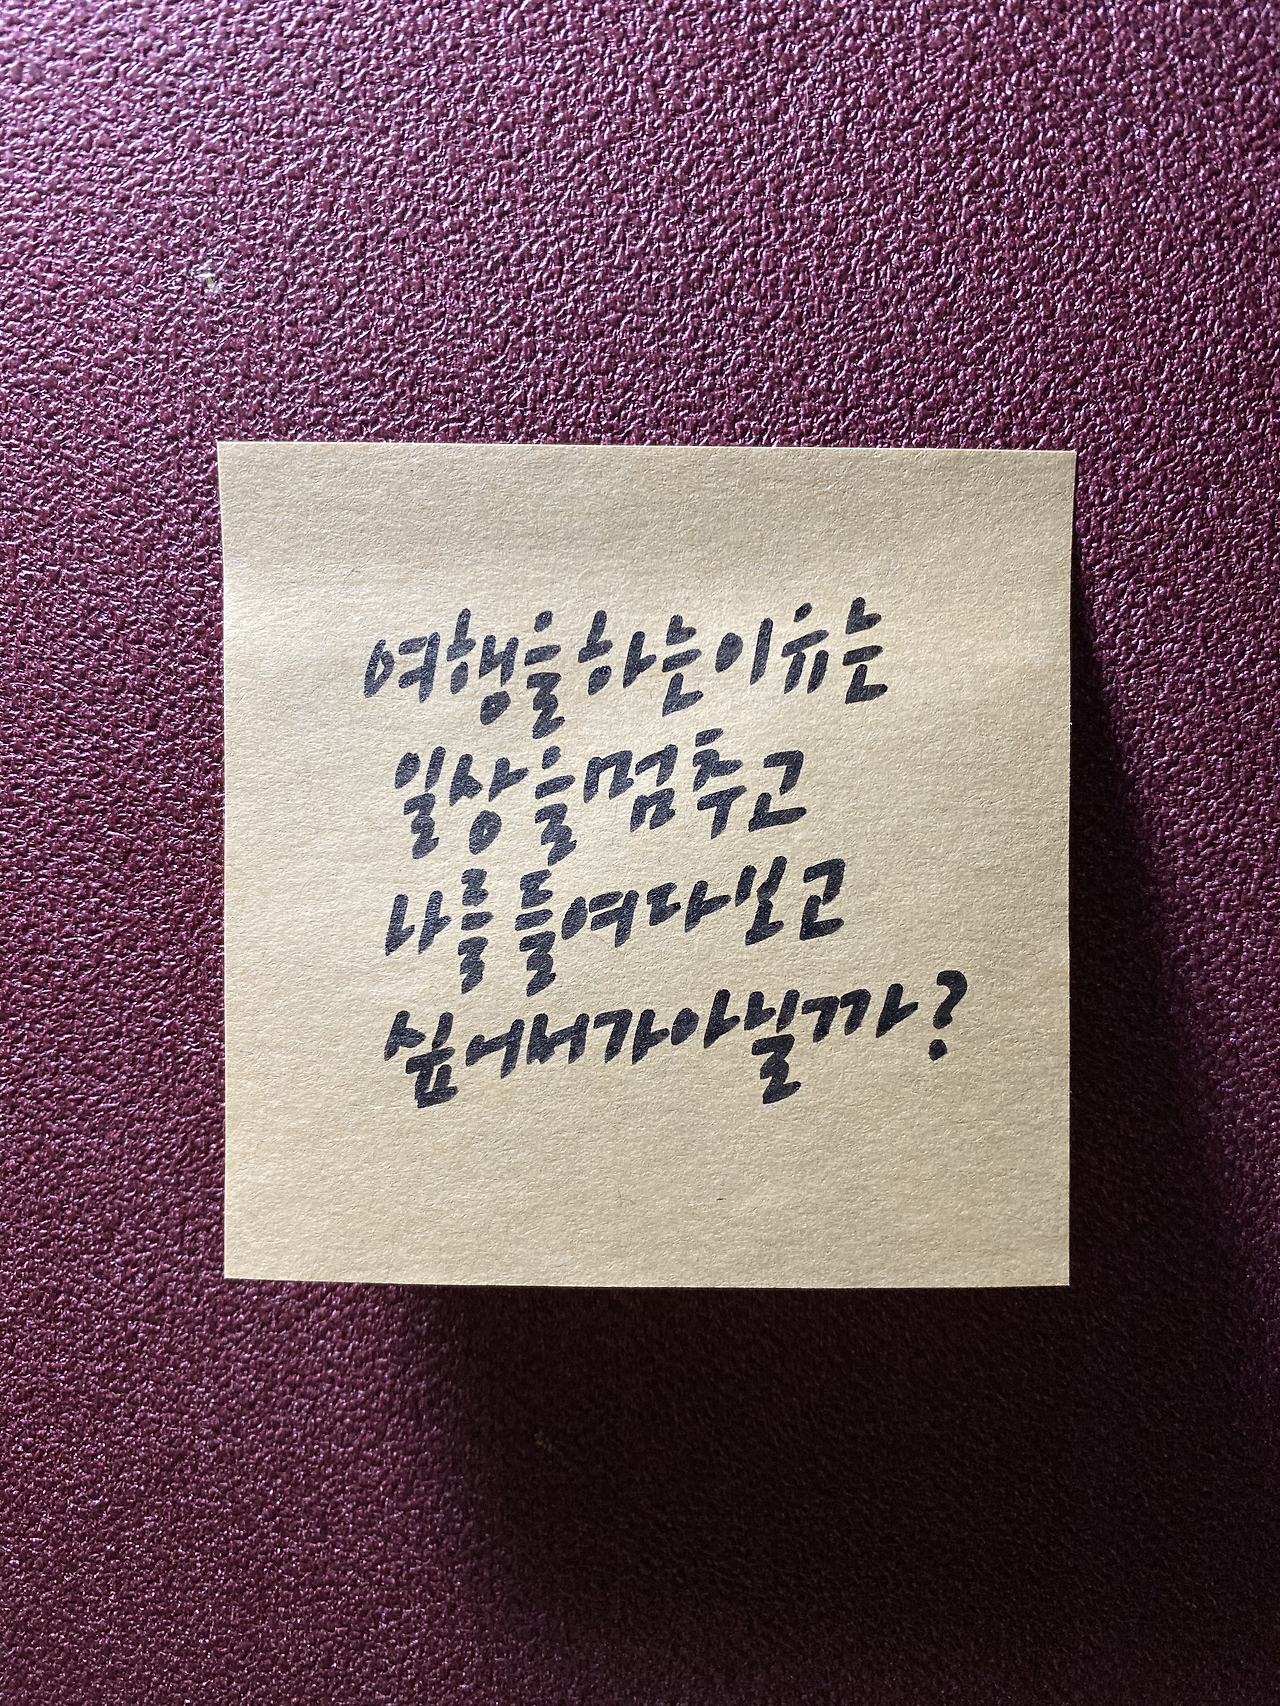 여행을 하는 이유는
일상을 멈추고
나를 들여다보고
싶어서가 아닐까?